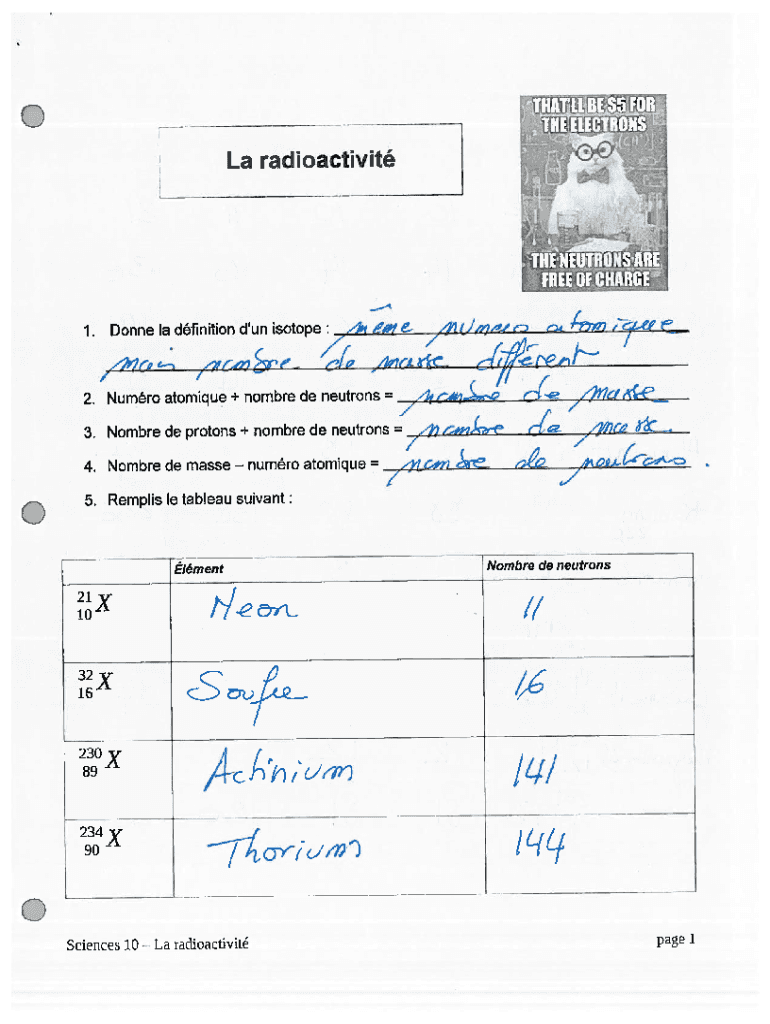 THAT'LL BE $5 FOR
THE ELECTRONS
La radioactivité
THE NEUTRONS ARE
FREE OF CHARGE
1. Donne la définition d'un isotope : même numéro atomique
mais nombre de masse différent
2. Numéro atomique + nombre de neutrons = nombre de masse
3. Nombre de protons + nombre de neutrons = nombre de masse.
4. Nombre de masse – numéro atomique = nombre de neutrons.
5. Remplis le tableau suivant :
Élément Nombre de neutrons
21
10 X Neon 11
32
16 X Soufre 16
230
89 X Actinium 141
234
90 X Thorium 144
Sciences 10 – La radioactivité page 1